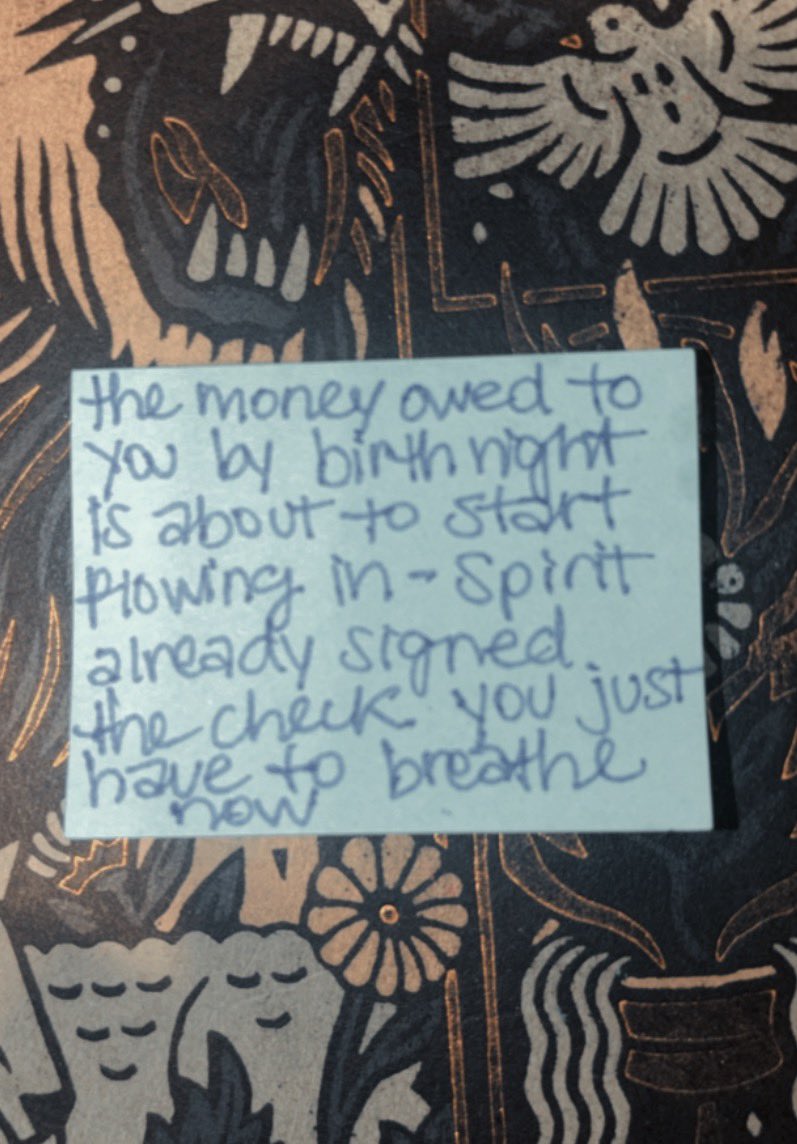 the money owed to
you by birthnight
is about to start
Flowing in - Spirit
already signed
the check you just
have to breathe
now